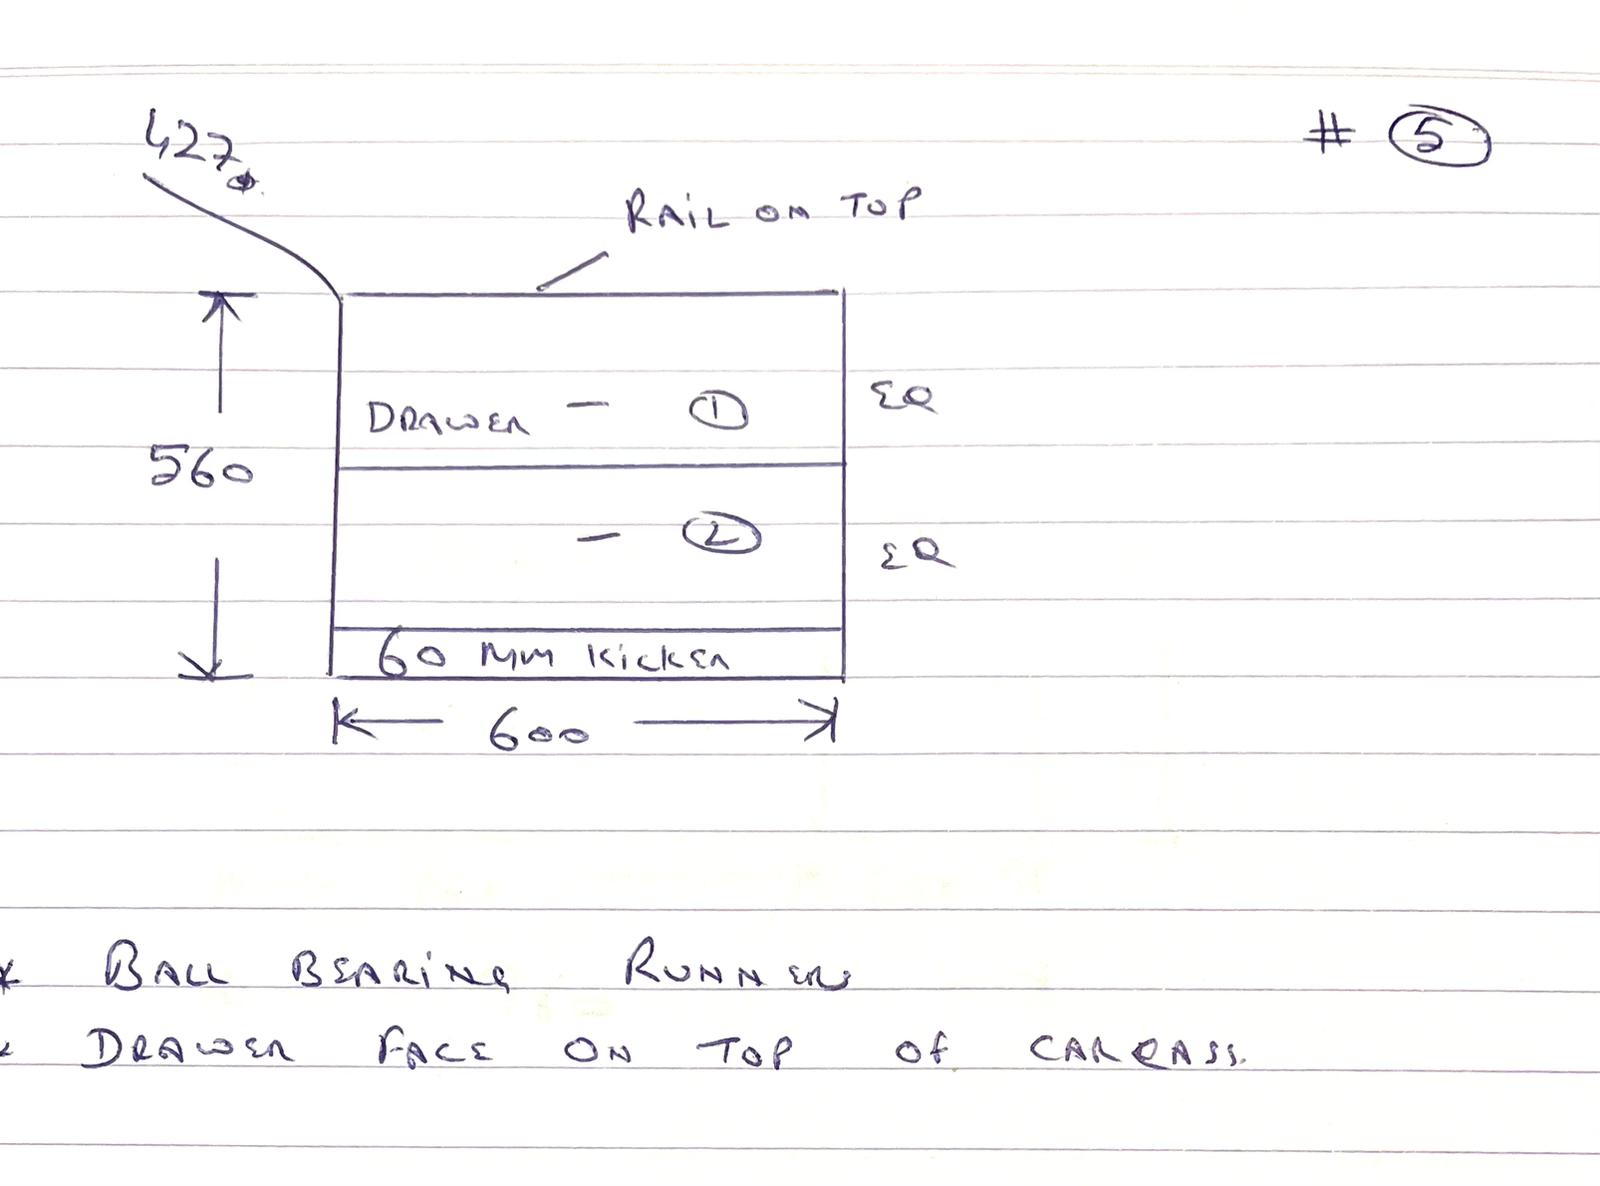 427
# 5
RAIL ON TOP
DRAWER - 1
EQ
560
- 2
EQ
60 MM KICKER
600
* BALL BEARING RUNNERS
* DRAWER FACE ON TOP OF CARCASS.